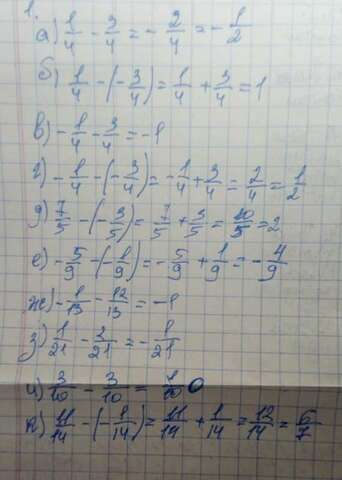 1.
а) 1/4 - 3/4 = - 2/4 = - 1/2
б) 1/4 - (- 3/4) = 1/4 + 3/4 = 1
в) - 1/4 - 3/4 = -1
г) - 1/4 - (- 3/4) = - 1/4 + 3/4 = 2/4 = 1/2
д) 7/5 - (- 3/5) = 7/5 + 3/5 = 10/5 = 2
е) - 5/9 - (- 1/9) = - 5/9 + 1/9 = - 4/9
ж) - 1/13 - 12/13 = -1
з) 1/21 - 2/21 = - 1/21
и) 3/10 - 3/10 = 0
к) 11/14 - (- 1/14) = 11/14 + 1/14 = 12/14 = 6/7